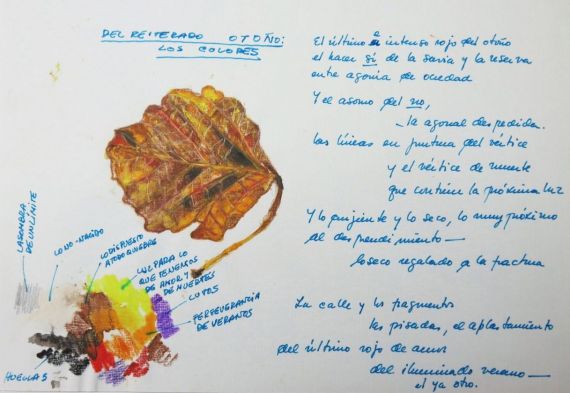 DEL REITERADO OTOÑO:
LOS COLORES
El último e intenso rojo del otoño
el hacer sí de la savia y la reserva
entre agonía de
Y el asomo del no,
la agonal despedida.
Las líneas en puntura del vértice
y el vértice de muerte
que contiene la próxima luz
Y lo crujiente y lo seco, lo muy próximo
al desprendimiento—
lo seco regalado a la fractura
La calle y los fragmentos
las pisadas, el aplastamiento
del último rojo de amor
del iluminado verano—
el ya otro.
LA SOMBRA
DE UN LÍMITE
LO NO-NACIDO
LO DISPUESTO
A TODO
LUZ PARA LO
QUE TENEMOS
DE AMOR Y
DE MUERTES
LUTOS
PERSEVERANCIA
DE VERANOS
HUELLAS